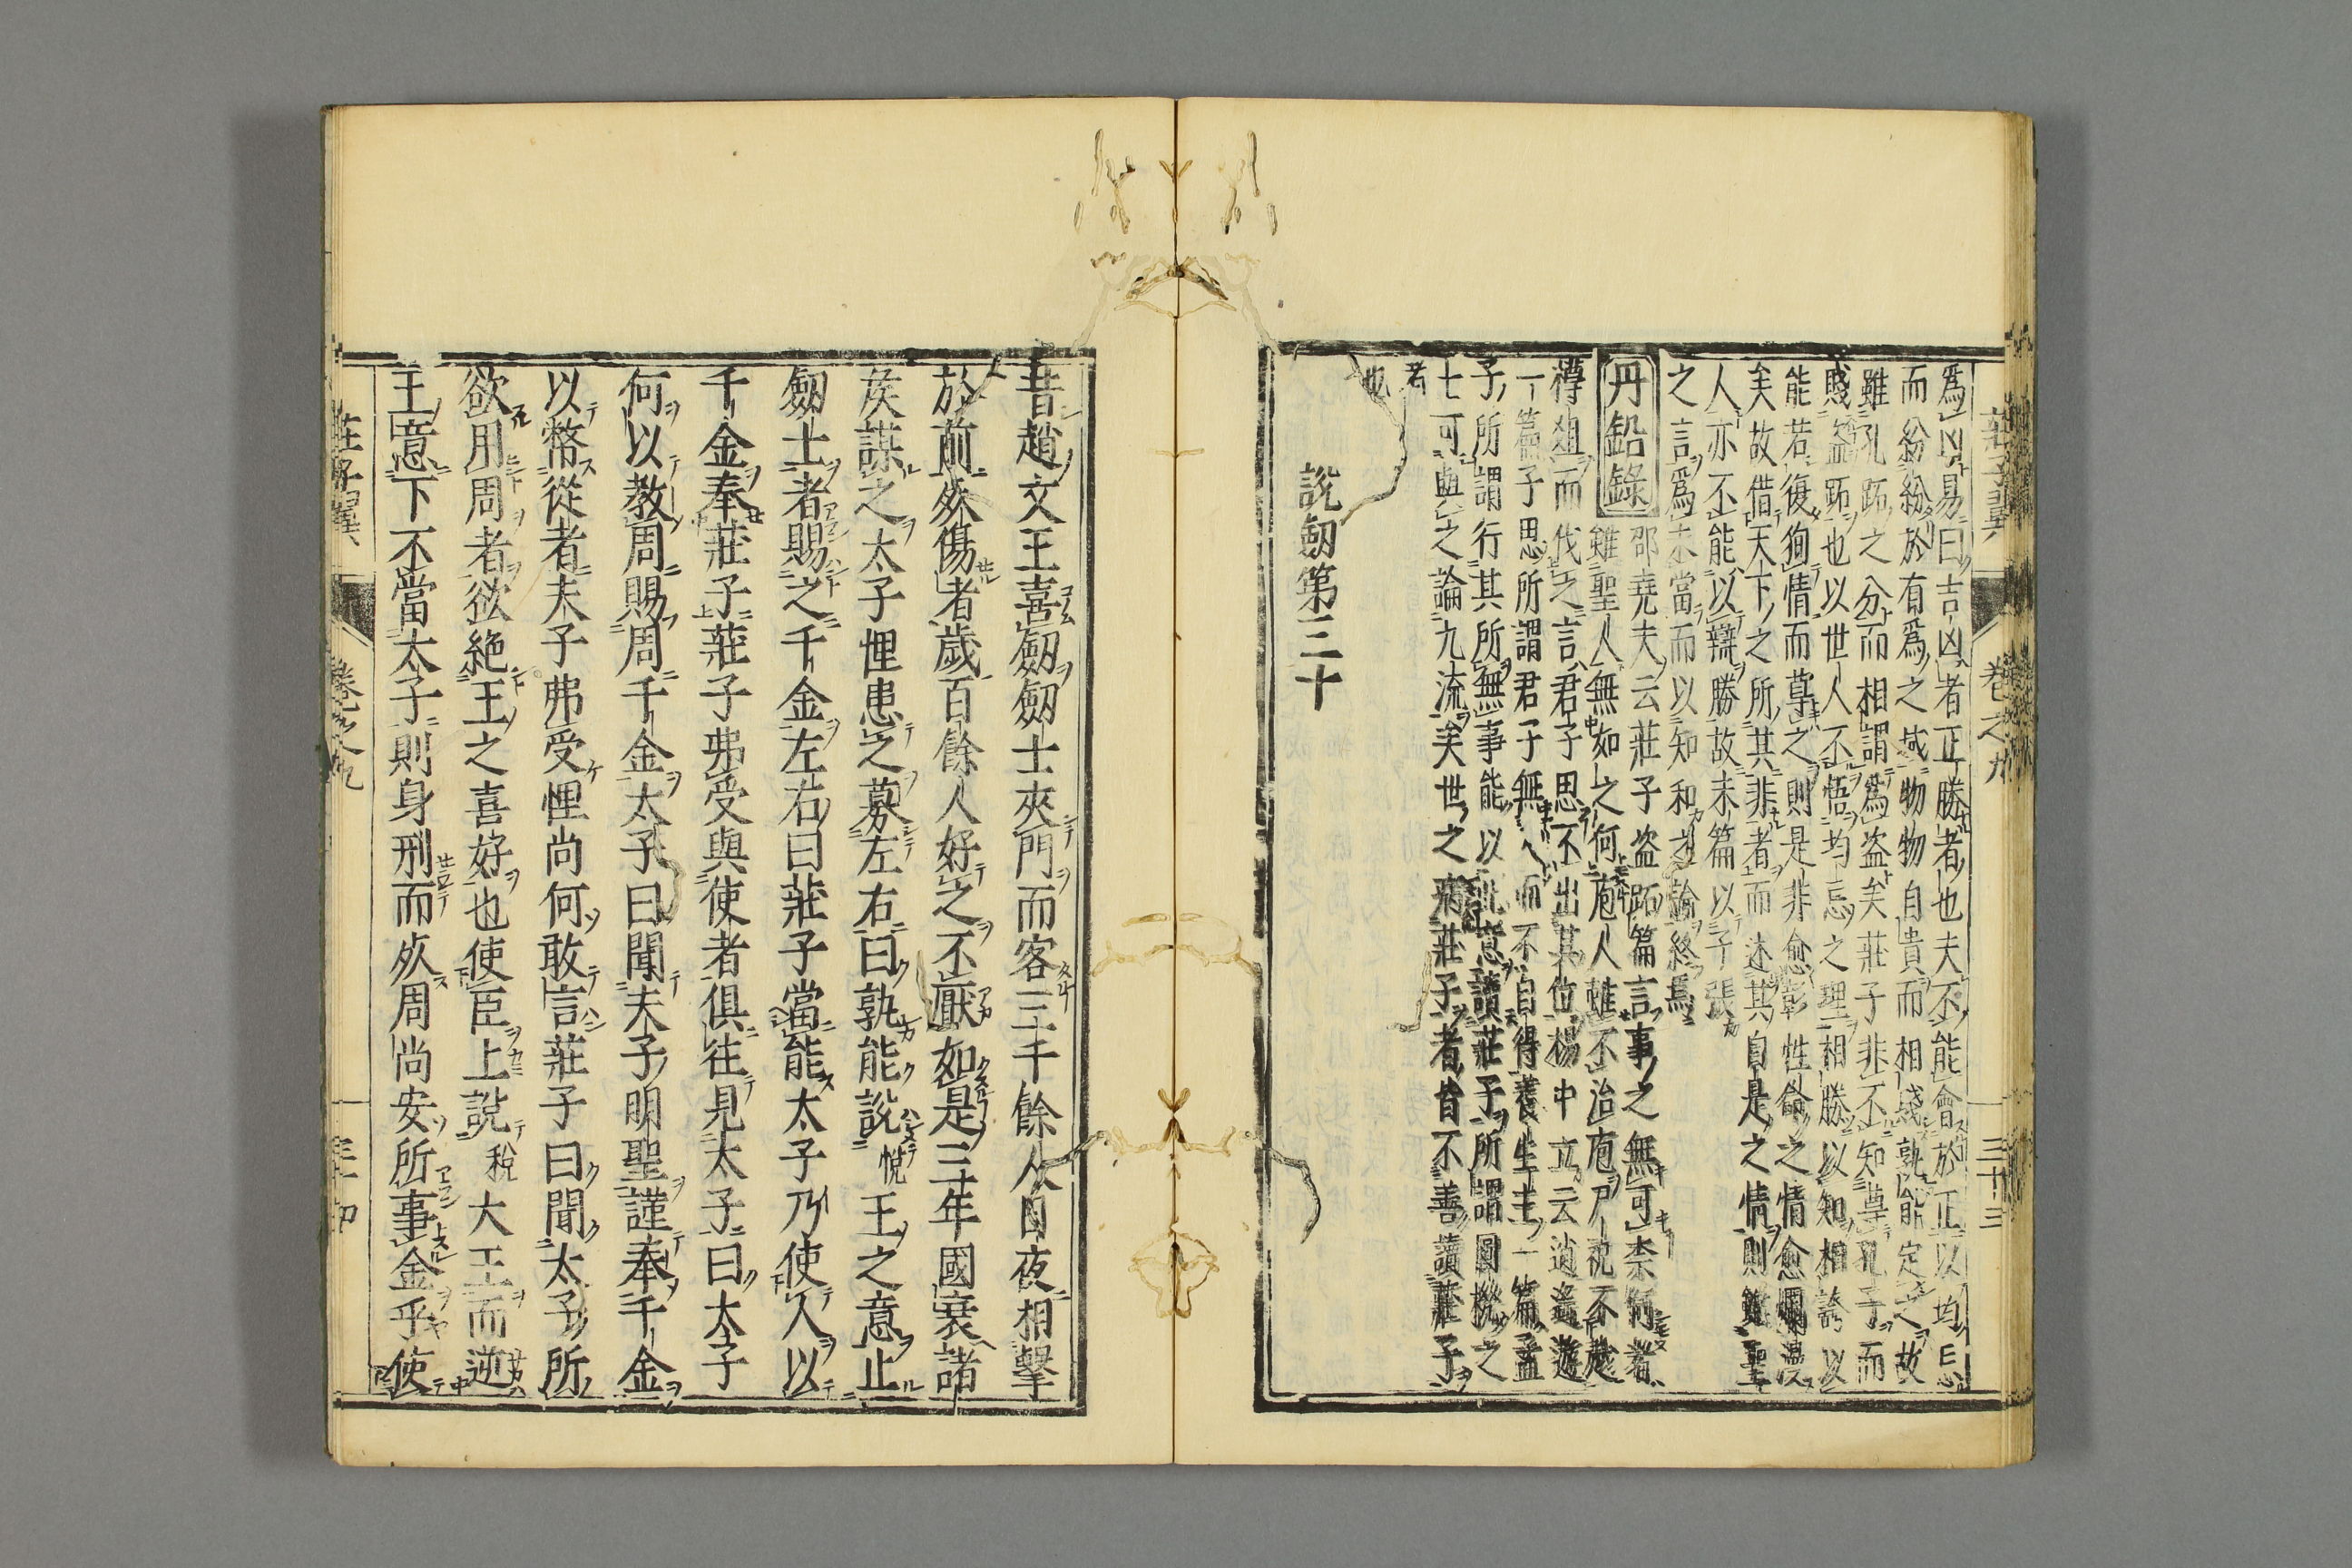 莊子翼 卷之九 三十三
爲凶易曰吉凶者正勝者也夫不能會於正以均己
而紛紛於有爲之域物物自貴而相賤孰能定之故
雖孔跖之分而相謂爲盗矣莊子非不知尊孔子而
賤盗跖也以世人不悟均忘之理相勝以知相誇以
能若復徇情而尊之則是非愈彰性命之情愈爛漫
矣故借天下之所其非者而述其自是之情則雖聖
人亦不能以辯勝故末篇以子張
之言爲未當而以知和之論終焉
丹鉛錄 邵堯夫云莊子盗跖篇言事之無可柰何者
雖聖人無如之何庖人雖不治庖尸祝不越
樽俎而伐之言君子思不出其位楊中立云逍遙遊
一篇子思所謂君子無入而不自得養生主一篇孟
子所謂行其所無事能以此意讀莊子所謂圓機之
士可與之論九流矣世之病莊子者皆不善讀莊子
者
也
說劒第三十
昔趙文王喜劒劒士夾門而客三千餘人日夜相擊
於前死傷者歲百餘人好之不厭如是三年國衰諸
侯謀之太子悝患之募左右曰孰能說悅王之意止
劒士者賜之千金左右曰莊子當能太子乃使人以
千金奉莊子莊子弗受與使者俱往見太子曰太子
何以教周賜周千金太子曰聞夫子明聖謹奉千金
以幣從者夫子弗受悝尚何敢言莊子曰聞太子所
欲用周者欲絶王之喜好也使臣上說稅大王而逆
王意下不當太子則身刑而死周尚安所事金乎使
莊子翼 卷之九